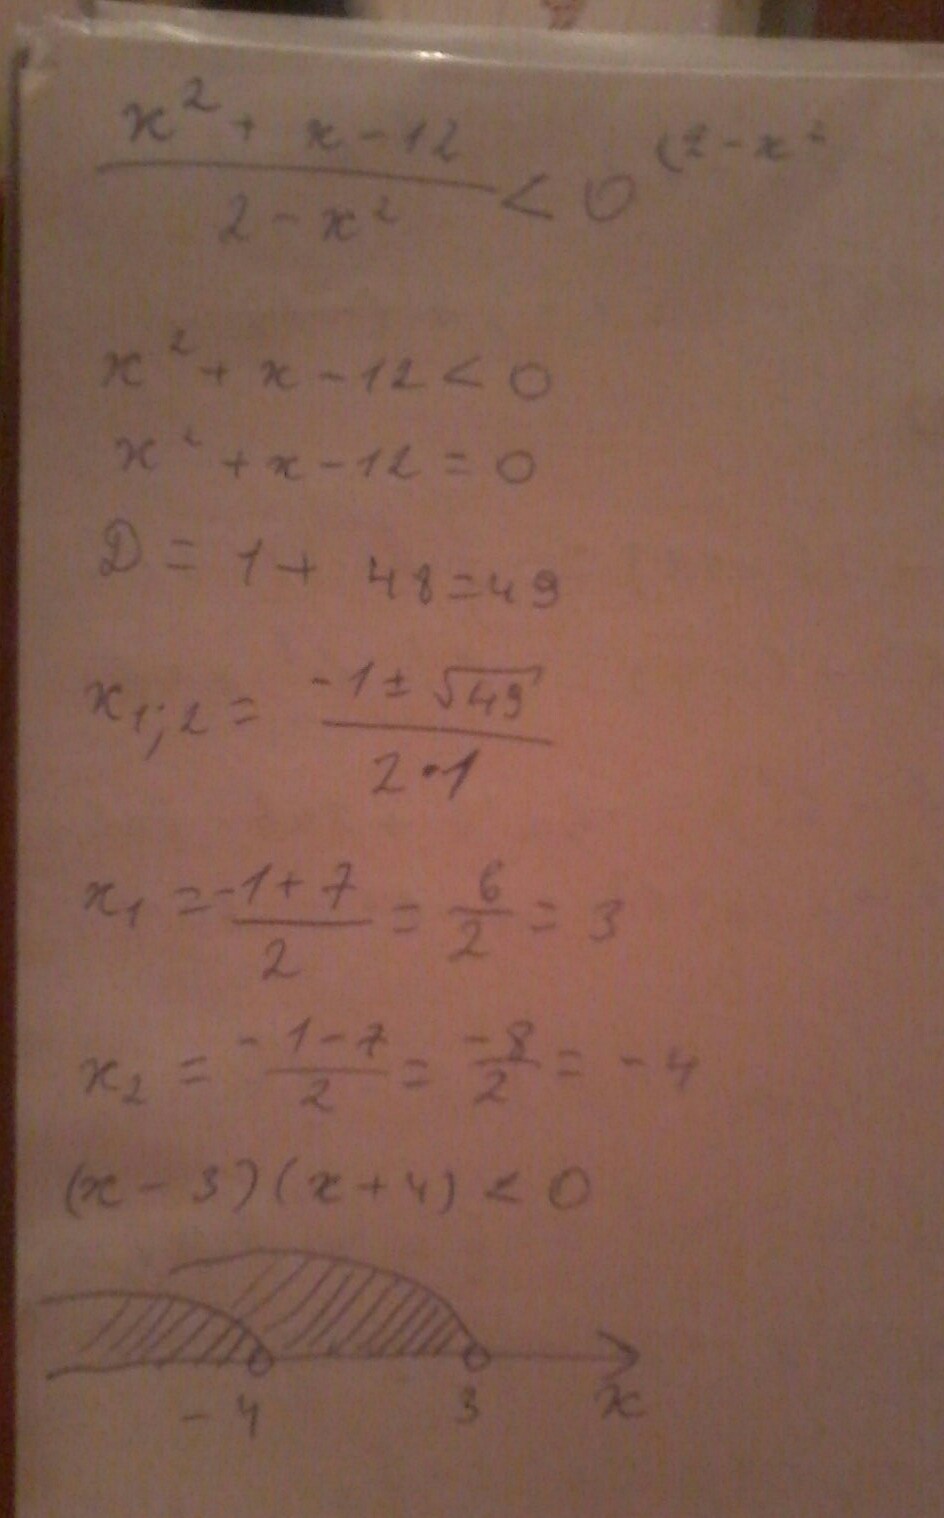 (x² + x - 12)/(2 - x²) < 0 (2 - x²
x² + x - 12 < 0
x² + x - 12 = 0
D = 1 + 48 = 49
x₁;₂ = (-1 ± √49)/(2 • 1)
x₁ = (-1 + 7)/2 = 6/2 = 3
x₂ = (-1 - 7)/2 = (-8)/2 = -4
(x - 3)(x + 4) < 0
-4 3 x